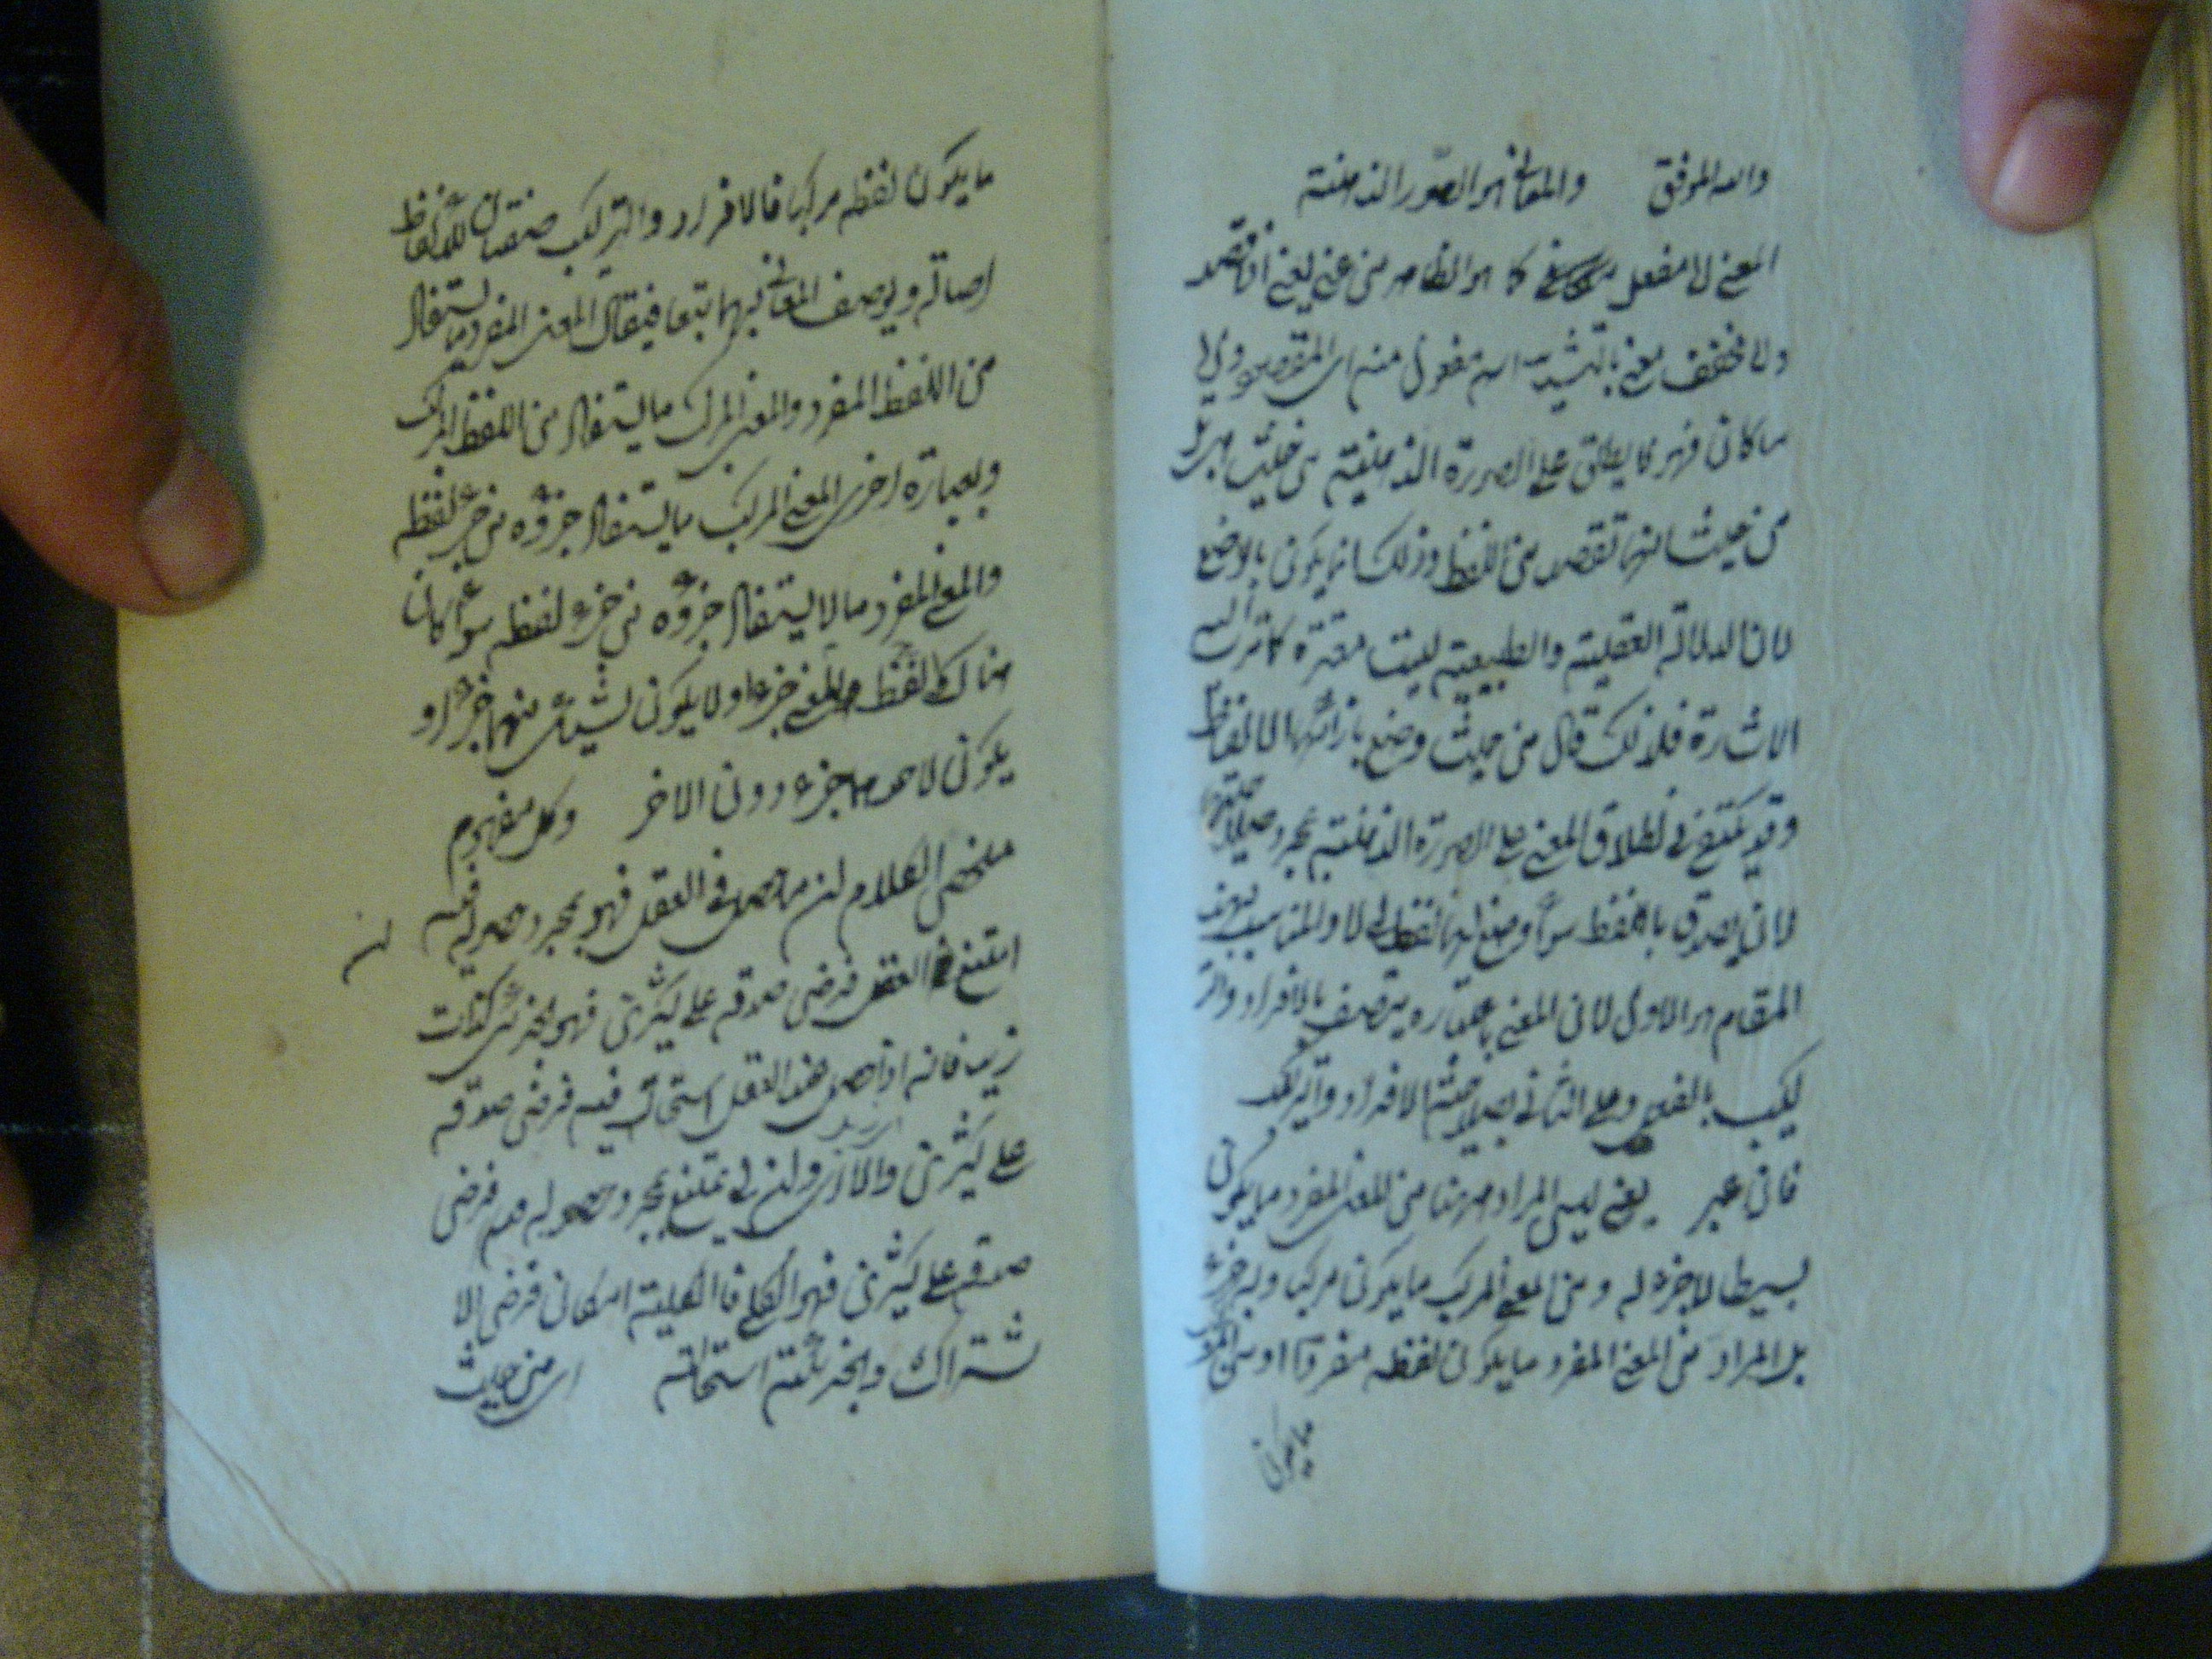 والله الموفق والمعاني هو الصور الذهنية
المعنى اما مفعل كما هو الظاهر من عنى يعنى اذا قصد
واما مخفف معنى بالتشديد اسم مفعول منه اى المقصود وايا
ما كان فهو لا يطلق على الصورة الذهنية من حيث هى بل
من حيث انها تقصد من اللفظ وذلك انما يكون بالوضع
لان الدلالة العقلية والطبيعية ليست معتبرة كما مرت اليه
الاشارة فلذلك قال من حيث وضع بازائها الالفاظ
وقد يكتفى فى اطلاق المعنى على الصورة الذهنية بمجرد صلاحيتها
لان يقصد باللفظ سواء وضع لها لفظ ام لا والمناسب بهذا
المقام هو الاول لان المعنى باعتباره يتصف بالافراد والتر
كيب بالفعل وعلى الثانى بصلاحية الافراد والتركيب
فان عبر يعنى ليس المراد ههنا من المعنى المفرد ما يكون
بسيطا لا جزء له ومن المعنى المركب ما يكون مركبا وله جزء
بل المراد من المعنى المفرد ما يكون لفظه مفردا ومن المركب
ما يكون
ما يكون لفظه مركبا فالافراد والتركيب صفتان للالفاظ
اصالة ويوصف المعانى بهما تبعا فيقال المعنى المفرد ما يستفاد
من اللفظ المفرد والمعنى المركب ما يستفاد من اللفظ المركب
وبعبارة اخرى المعنى المركب ما يستفاد جزؤه من جزء لفظه
والمعنى المفرد ما لا يستفاد جزؤه من جزء لفظه سواء كان
هناك للفظ وللمعنى جزء او لا يكون لشيئ منهما جزء او
يكون لاحدهما جزء دون الاخر وكل مفهوم
ملخص الكلام ان ما حصل فى العقل فهو بمجرد حصوله فيه
ان
امتنع العقل فرض صدقه على كثيرين فهو الجزئى كذات
زيد فانه اذا حصل عند العقل استحال فيه فرض صدقه
على كثيرين والا اى وان لم يمتنع بمجرد حصوله فيه فرض
صدقه على كثيرين فهو الكلى فالكلية امكان فرض الا
شتراك والجزئية استحالته اى من حيث